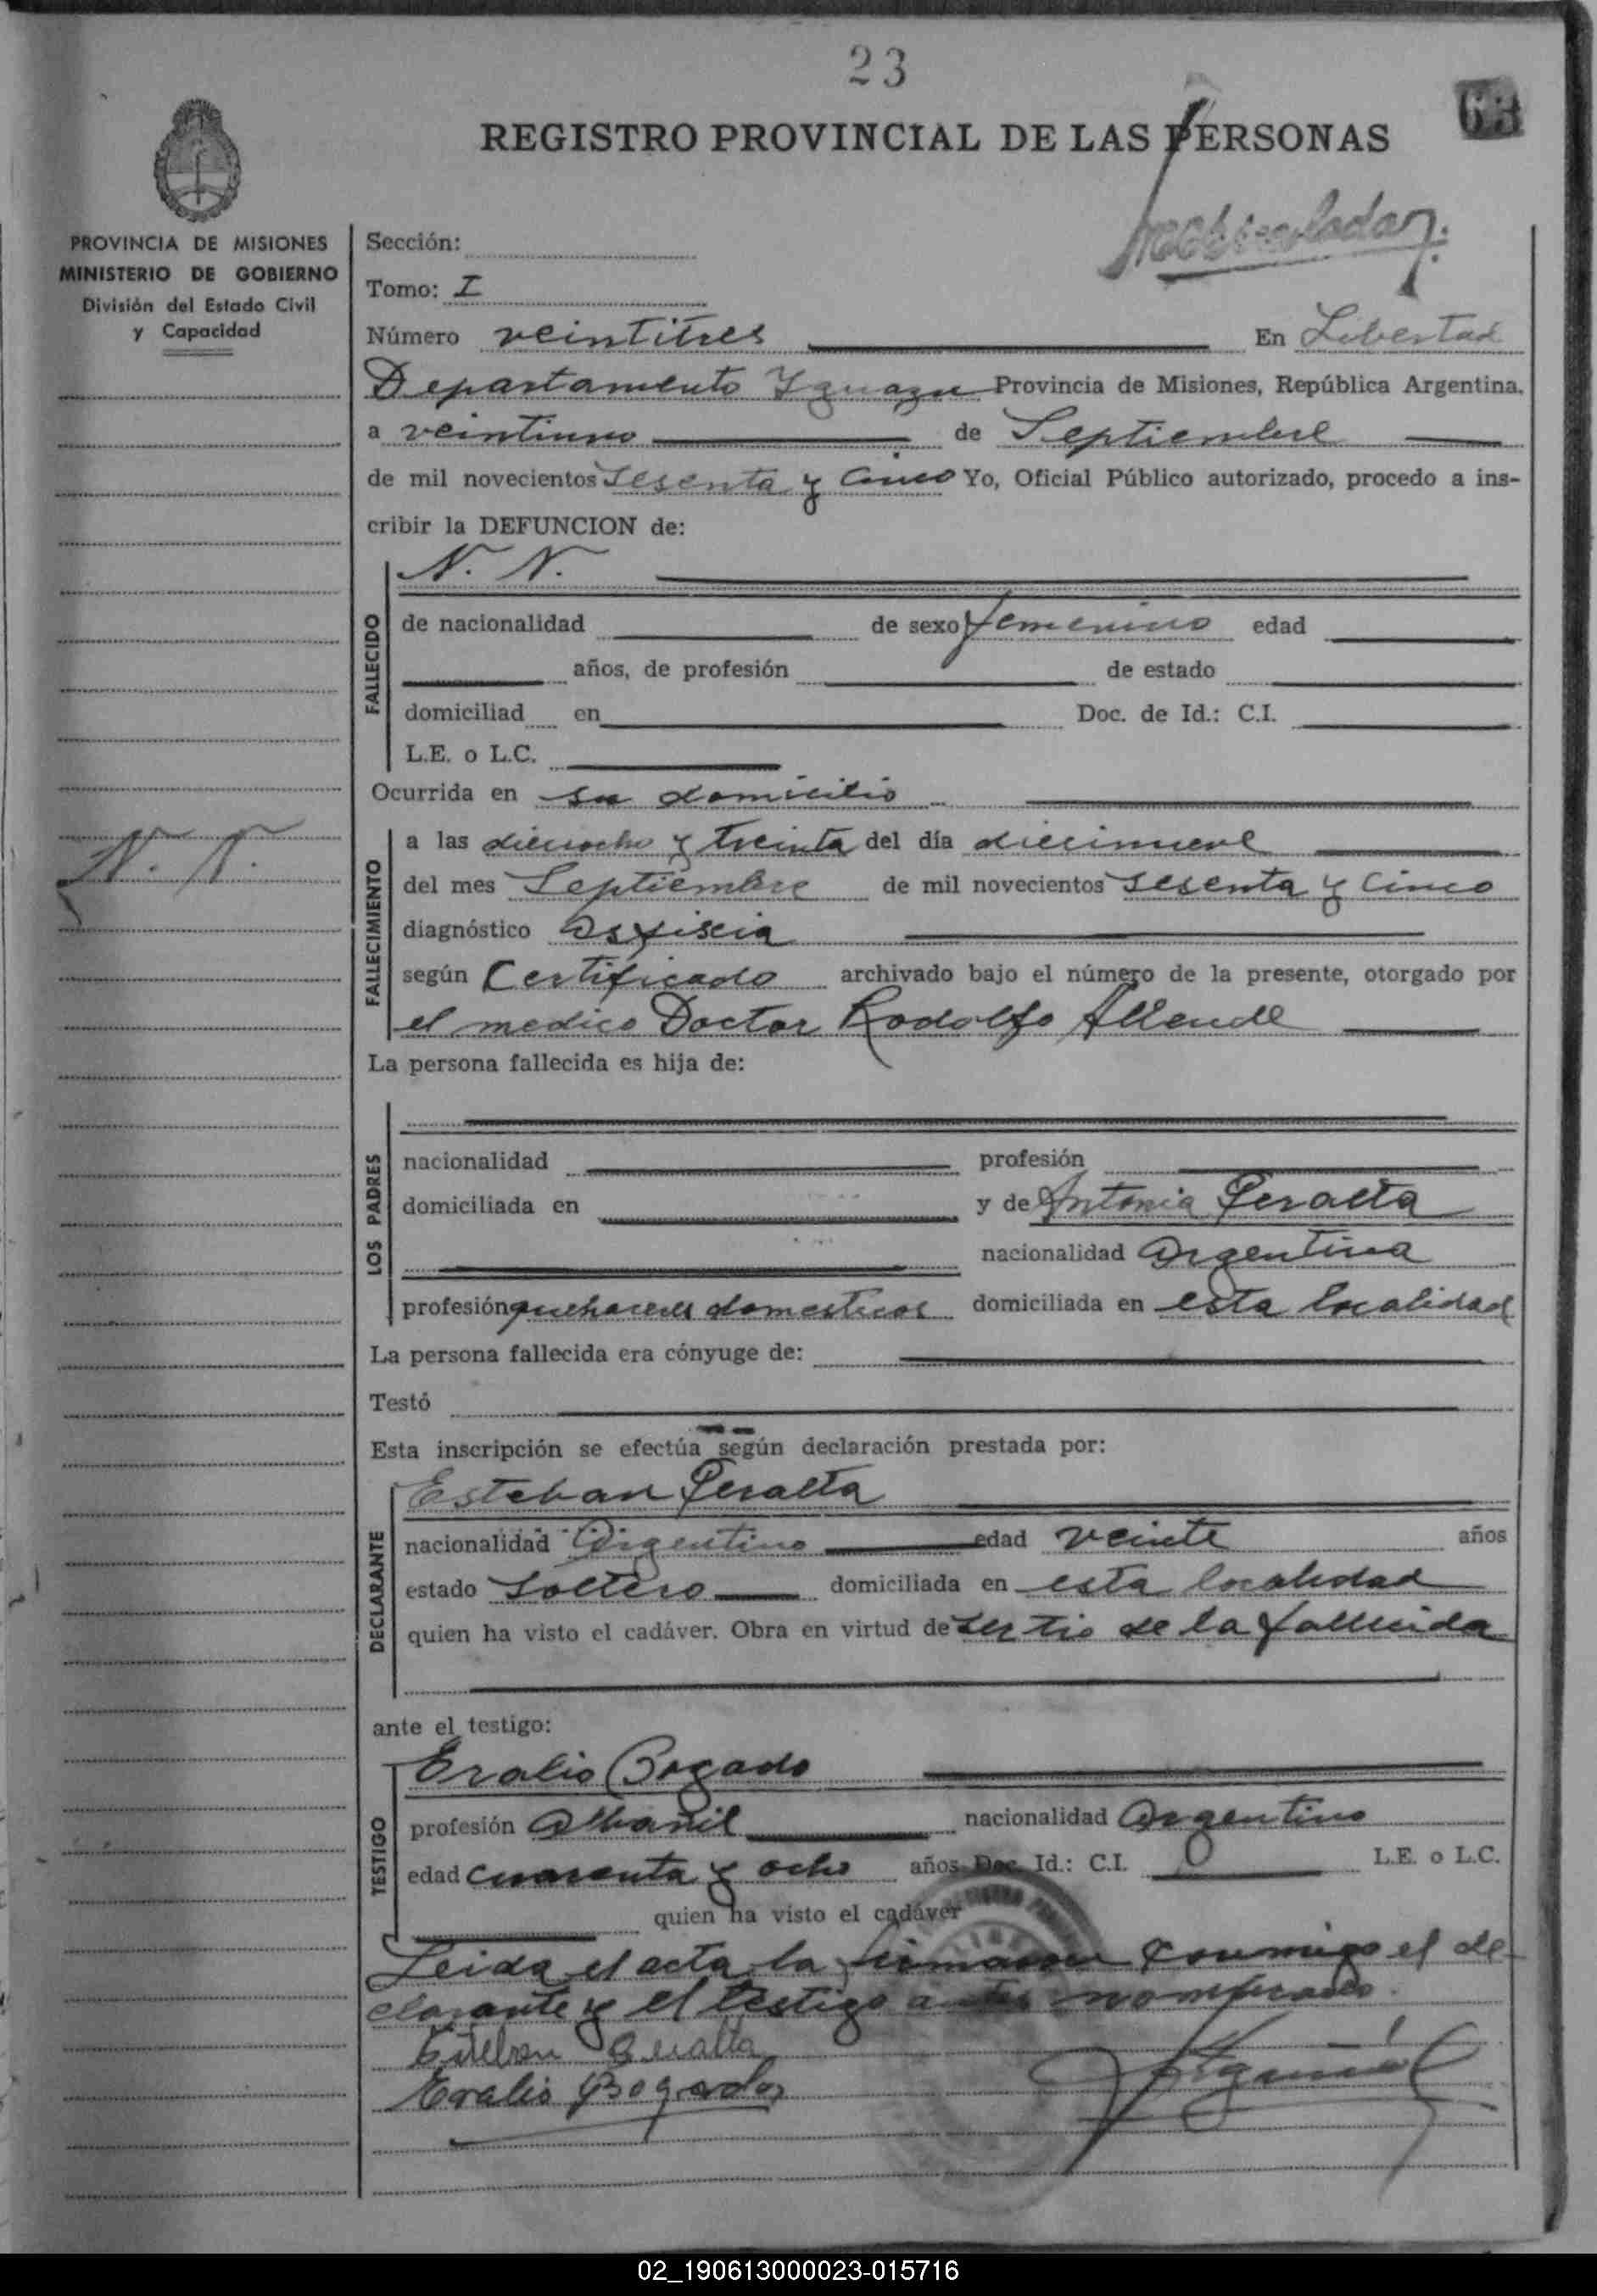 23
REGISTRO PROVINCIAL DE LAS PERSONAS
63
PROVINCIA DE MISIONES
MINISTERIO DE GOBIERNO
División del Estado Civil
y Capacidad
Sección:
Tomo: I
Número veintitres En Libertad
Departamento Iguazu Provincia de Misiones, República Argentina.
a veintiuno de Septiembre
de mil novecientos sesenta y cinco Yo, Oficial Público autorizado, procedo a ins-
cribir la DEFUNCION de:
N. N.
FALLECIDO
de nacionalidad de sexo femenino edad
años, de profesión de estado
domiciliad en Doc. de Id.: C.I.
L.E. o L.C.
Ocurrida en su domicilio
N. N.
FALLECIMIENTO
a las dieciocho y treinta del día diecinueve
del mes Septiembre de mil novecientos sesenta y cinco
diagnóstico Asfixia
según Certificado archivado bajo el número de la presente, otorgado por
el medico Doctor Rodolfo Allende
La persona fallecida es hija de:
LOS PADRES
nacionalidad profesión
domiciliada en y de Antonia Peralta
nacionalidad Argentina
profesión quehaceres domesticos domiciliada en esta localidad
La persona fallecida era cónyuge de:
Testó
Esta inscripción se efectúa según declaración prestada por:
Esteban Peralta
DECLARANTE
nacionalidad Argentino edad veinte años
estado Soltero domiciliada en esta localidad
quien ha visto el cadáver. Obra en virtud de ser tio de la fallecida
ante el testigo:
Eralio Bogado
TESTIGO
profesión Albañil nacionalidad Argentino
edad cuarenta y ocho años Doc. Id.: C.I. L.E. o L.C.
quien ha visto el cadáver
Leida el acta la firmaron conmigo el de-
clarante y el testigo antes nombrados.
Esteban Peralta
Eralio Bogado
02_190613000023-015716